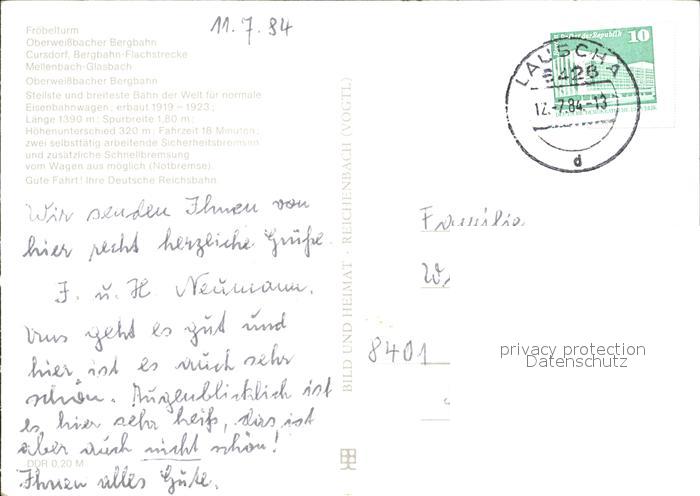 11.7.84
Fröbelturm
Oberweißbacher Bergbahn
Cursdorf, Bergbahn-Flachstrecke
Mellenbach-Glasbach
Oberweißbacher Bergbahn
Steilste und breiteste Bahn der Welt für normale
Eisenbahnwagen; erbaut 1919 – 1923;
Länge 1390 m; Spurbreite 1,80 m;
Höhenunterschied 320 m; Fahrzeit 18 Minuten;
zwei selbsttätig arbeitende Sicherheitsbremsen
und zusätzliche Schnellbremsung
vom Wagen aus möglich (Notbremse).
Gute Fahrt! Ihre Deutsche Reichsbahn.
Wir senden Ihnen von
hier recht herzliche Grüße
F. u. H. Neumann.
Uns geht es gut und
hier ist es auch sehr
schön. Augenblicklich ist
es hier sehr heiß, das ist
aber auch nicht schön!
Ihnen alles Gute.
DDR 0,20 M
BILD UND HEIMAT · REICHENBACH (VOGTL)
10
LAUSCHA
6426
12.-7.84.-13
d
Familie
8401
privacy protection
Datenschutz